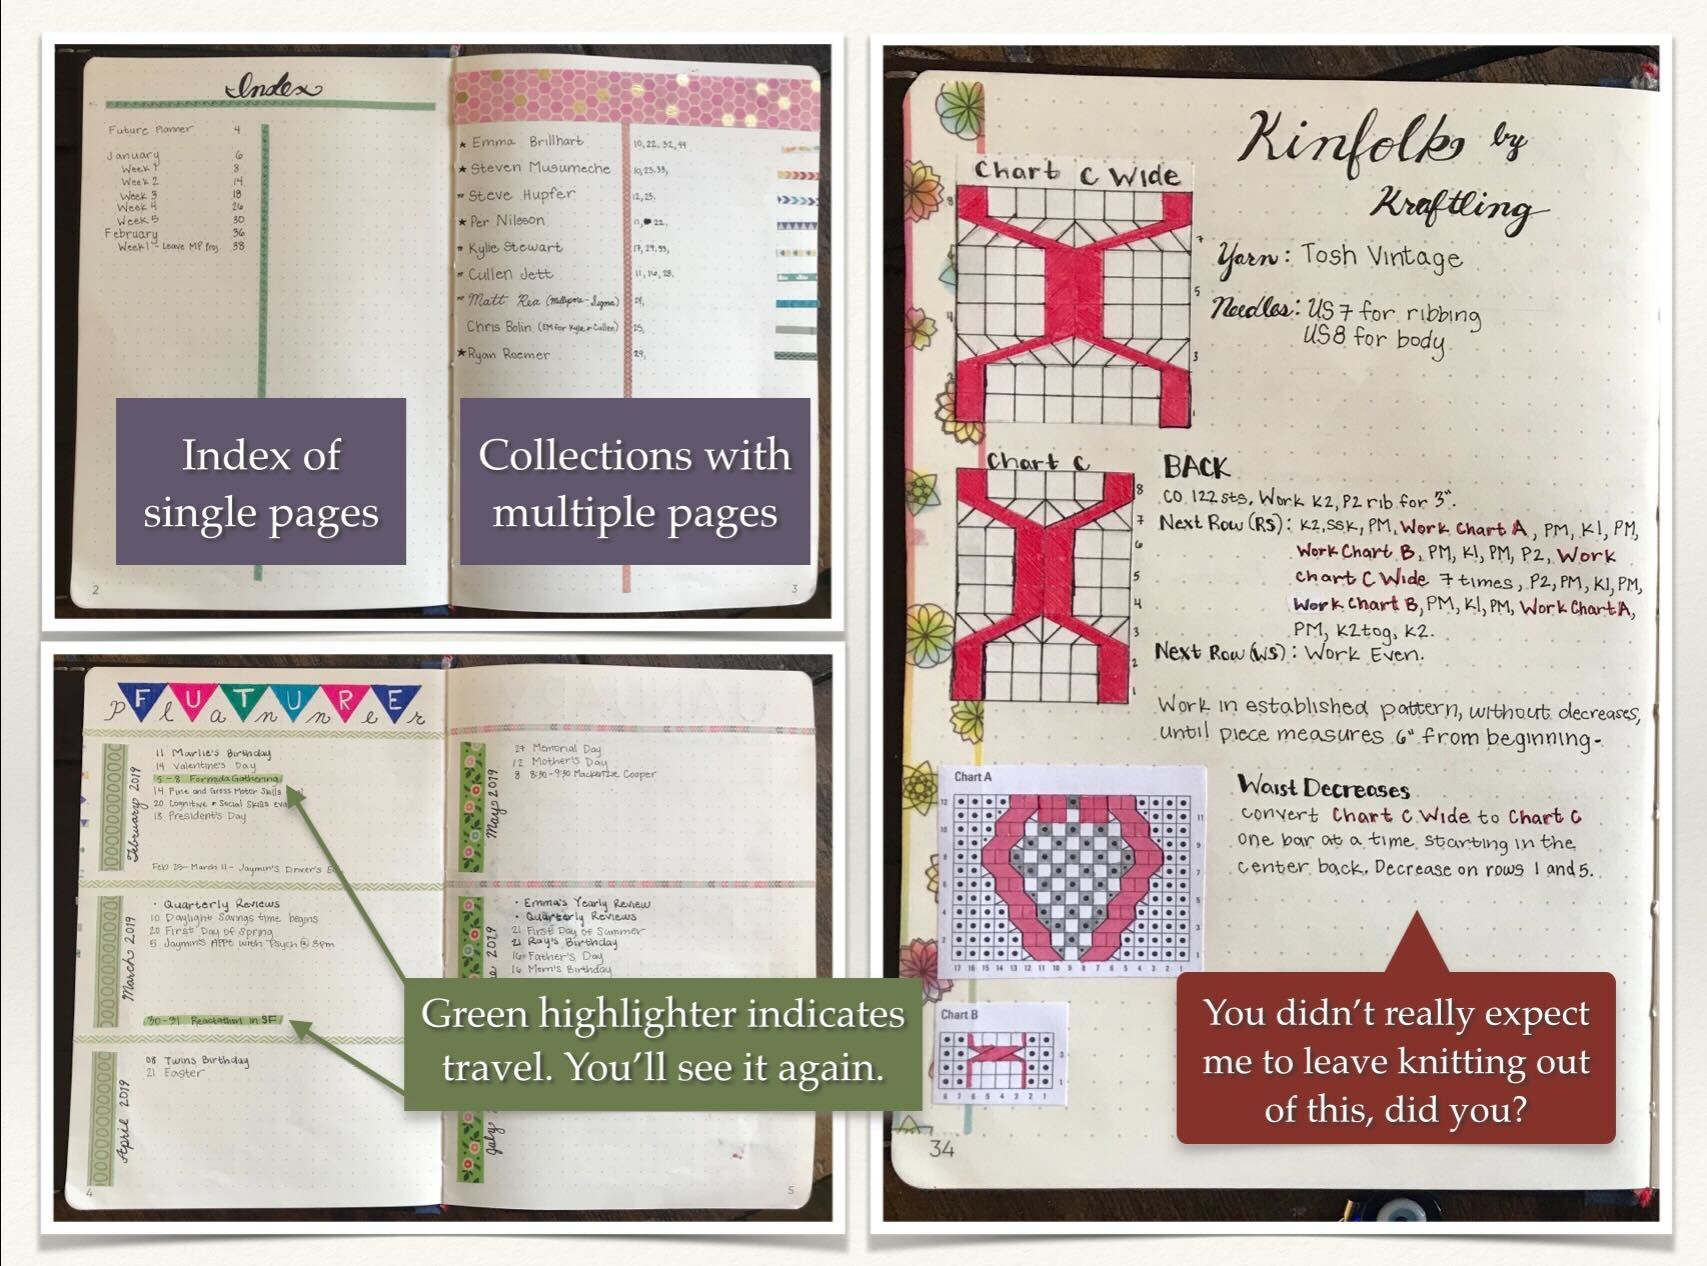 Index
Future Planner 4
January 6
Week 1 8
Week 2 14
Week 3 18
Week 4 26
Week 5 30
February 36
Week 1 - Leave MP Proj. 38
2
★ Emma Brillhart 10, 22, 32, 44
★ Steven Musumeche 10, 23, 33,
Steve Hupfer 12, 23,
★ Per Nilsson 11, 22,
Kylie Stewart 17, 29, 33,
Cullen Jett 11, 16, 28,
Matt Rea (Millipore-Sigma)
Chris Bolin (EM for Kyle & Cullen) 25,
★ Ryan Roemer 29,
3
Index of
single pages
Collections with
multiple pages
FUTURE
Planner
February 2019
11 Marlie's Birthday
14 Valentine's Day
5-8 Formida Gathering
14 Fine and Gross Motor Skills
20 Cognitive & Social Skills
18 President's Day
Feb 25- March 11 - Jaymin's Driver's
March 2019
• Quarterly Reviews
10 Daylight Savings time begins
20 First Day of Spring
5 Jaymin's APPt with Psych @ 3pm
30-31 Reactathon in SF
April 2019
08 Twins Birthday
21 Easter
4
May 2019
27 Memorial Day
12 Mother's Day
8 8:30-9:30 Mackenzie Cooper
2019
• Emma's Yearly Review
• Quarterly Reviews
21 First Day of Summer
21 Ray's Birthday
16 Father's Day
16 Mom's Birthday
July
5
Green highlighter indicates
travel. You'll see it again.
Kinfolk by
Kraftling
Chart C Wide
8
7
5
4
3
2
1
Yarn: Tosh Vintage
Needles: US 7 for ribbing
US8 for body
Chart C
8
7
6
5
4
3
2
1
BACK
CO 122 sts, Work K2, P2 rib for 3".
Next Row (RS): K2, SSK, PM, Work Chart A, PM, K1, PM,
Work Chart B, PM, K1, PM, P2, Work
Chart C Wide 7 times, P2, PM, K1, PM,
Work Chart B, PM, K1, PM, Work Chart A,
PM, K2tog, K2.
Next Row (WS): Work Even.
Work in established pattern, without decreases,
until piece measures 6" from beginning-
Chart A
12
11
10
9
8
7
6
5
4
3
2
1
17 16 15 14 13 12 11 10 9 8 7 6 5 4 3 2 1
Waist Decreases
Convert Chart C Wide to Chart C
one bar at a time starting in the
center back. Decrease on rows 1 and 5.
Chart B
3
1
8 7 6 5 4 3 2 1
34
You didn't really expect
me to leave knitting out
of this, did you?